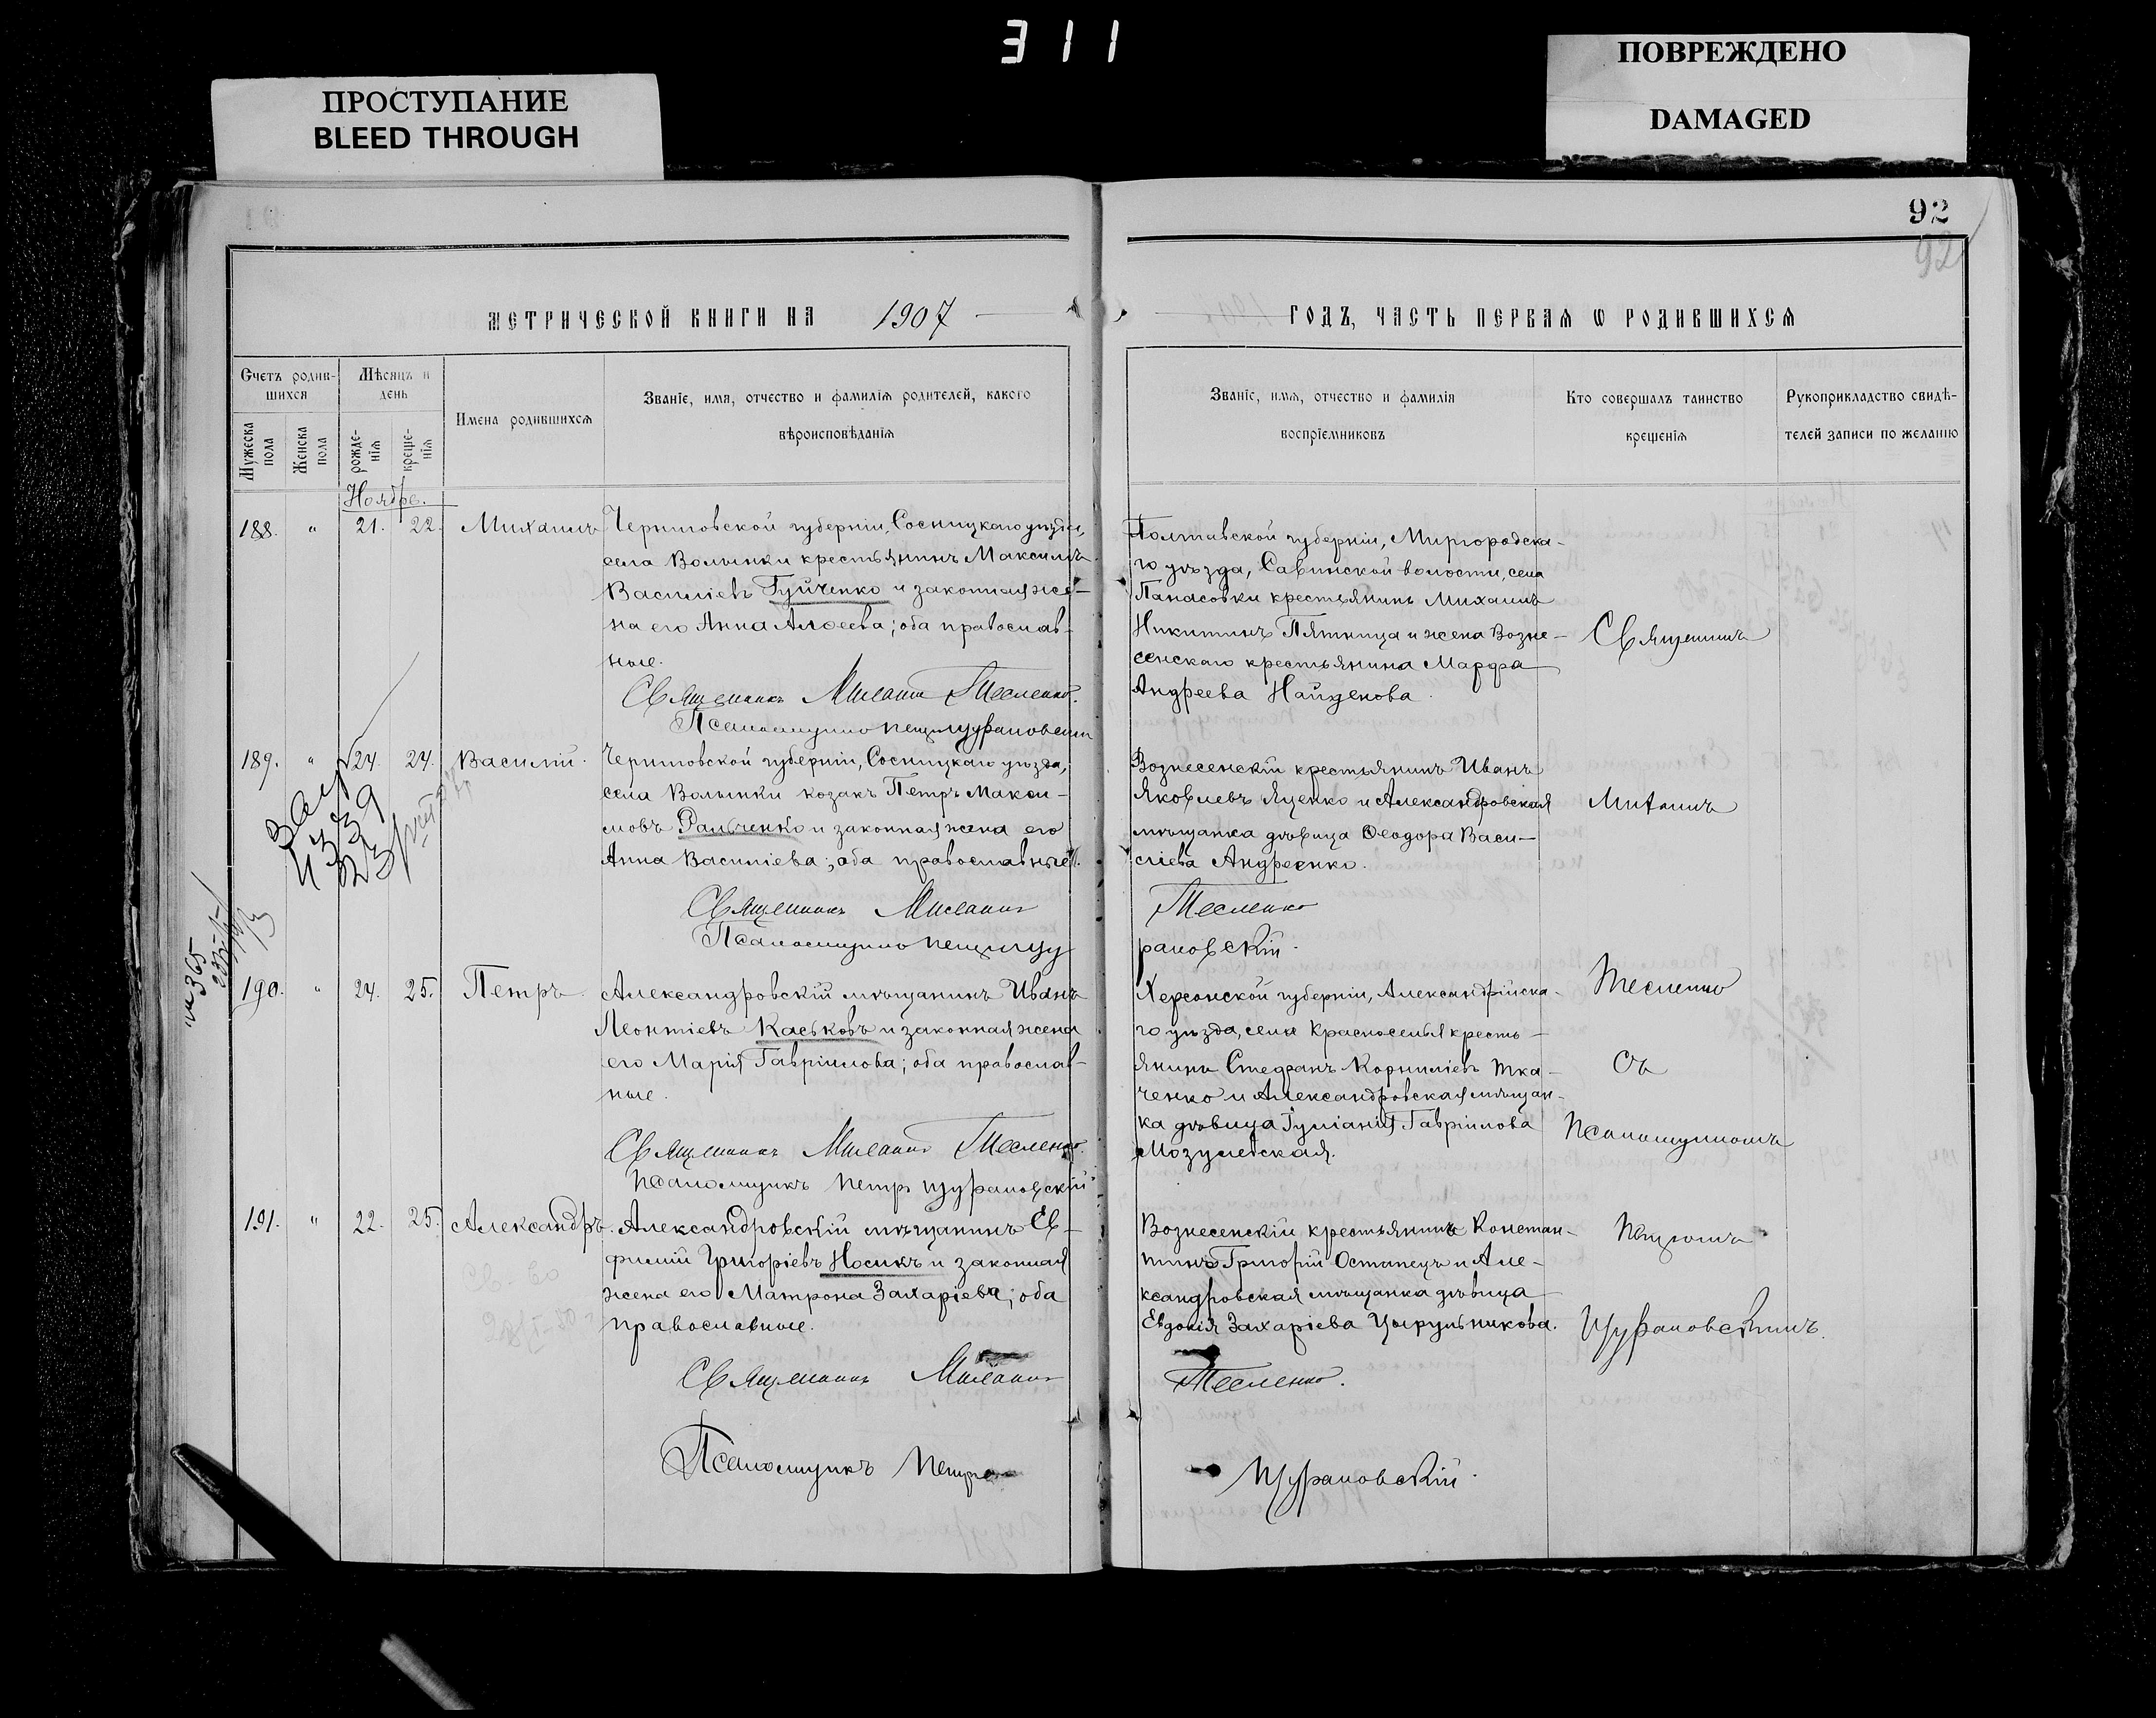 311
ПРОСТУПАНИЕ
BLEED THROUGH
ПОВРЕЖДЕНО
DAMAGED
92
92
МЕТРИЧЕСКОЙ КНИГИ НА 1907
ГОДЪ, ЧАСТЬ ПЕРВАЯ Ѡ РОДИВШИХСЯ
Счетъ родив-
шихся
Мѣсяцъ и
день
Мужеска
пола
Женска
пола
рожде-
нія
креще-
нія
Имена родившихся
Званіе, имя, отчество и фамилія родителей, какого
вѣроисповѣданія
Званіе, имя, отчество и фамилія
воспріемниковъ
Кто совершалъ таинство
крещенія
Рукоприкладство свидѣ-
телей записи по желанію
Ноябрь.
188. " 21. 22. Михаилъ
Черниговской губерніи, Сосницкаго уѣзда,
села Волынки крестьянинъ Максимъ
Василіевъ Гуйченко и законная же-
на его Анна Алоеева; оба православ-
ные.
Священникъ Тесленко.
Псаломщикъ Петръ Щурановскій
Полтавской губерніи, Миргородска-
го уѣзда, Савинской волости, села
Панасовки крестьянинъ Михаилъ
Никитинъ Пятница и жена Возне-
сенскаго крестьянина Марфа
Андреева Найденова.
Священникъ
189. " 24. 24. Василій.
Черниговской губерніи, Сосницкаго уѣзда,
села Волынки козакъ Петръ Макси-
мовъ Ральченко и законная жена его
Анна Василіева; оба православные.
Священникъ
Псаломщикъ Петръ Щу
Вознесенскій крестьянинъ Иванъ
Яковлевъ Яценко и Александровская
мѣщанка дѣвица Ѳеодора Васи-
ліева Андреенко.
Тесленко
рановскій.
190. " 24. 25. Петръ
Александровскій мѣщанинъ Иванъ
Леонтіевъ Каськовъ и законная жена
его Марія Гавріилова; оба православ-
ные.
Священникъ Тесленко.
Псаломщикъ Петръ Щурановскій
Херсонской губерніи, Александрійска-
го уѣзда, села Красноселья кресть-
янинъ Стефанъ Корниліевъ Тка-
ченко и Александровская мѣщан-
ка дѣвица Іуліанія Гавріилова
Мозулевская.
Тесленко
съ
Псаломщикомъ
191. " 22. 25. Александръ.
Александровскій мѣщанинъ Ев-
фимій Григоріевъ Носикъ и законная
жена его Матрона Захаріева; оба
православные.
Священникъ
Псаломщикъ Петръ
Вознесенскій крестьянинъ Констан-
тинъ Григорій Остапецъ и Але-
ксандровская мѣщанка дѣвица
Евдокія Захаріева Цырульникова.
Тесленко.
Щурановскій.
Петромъ
Щурановскимъ.